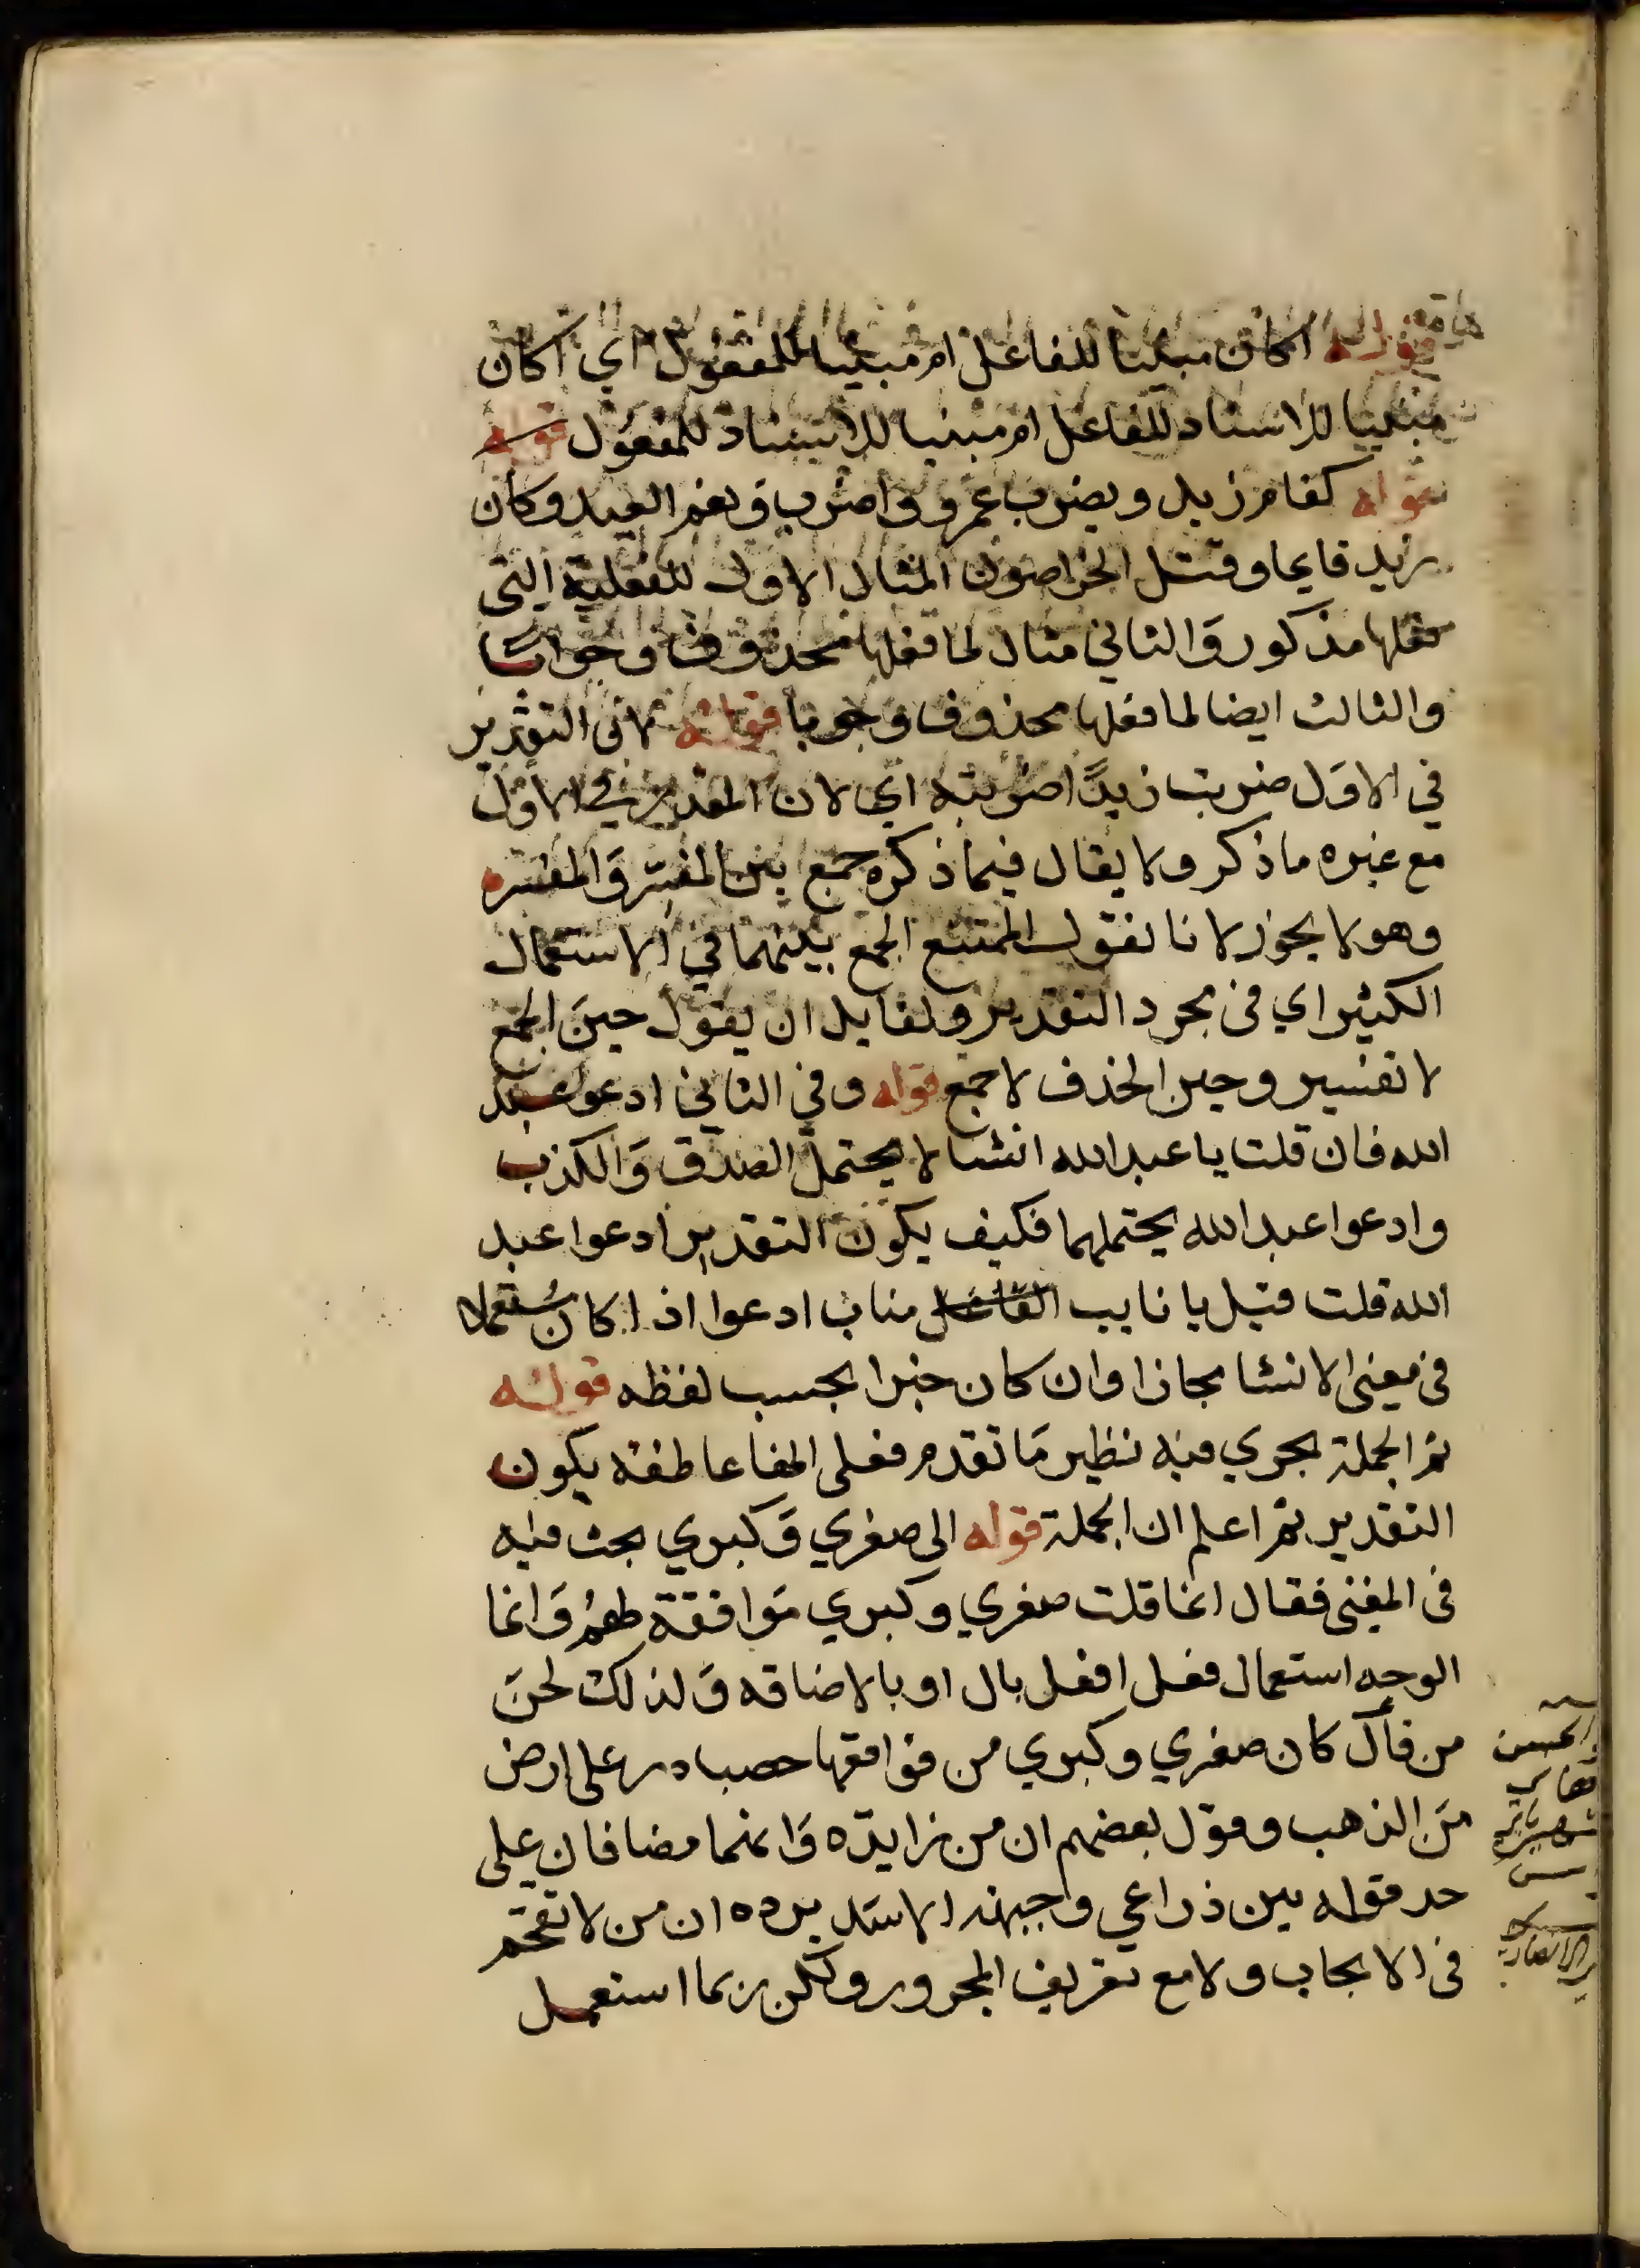 قوله اكان مبنيا للفاعل ام مبنيا للمفعول اي اكان
مبنيا للاسناد للفاعل ام مبنيا للاسناد للمفعول قوله
قوله كقام زيد ويضرب عمرو واضرب ونعم العبد وكان
زيد قايما وقتل الخراصون المثال الاول للفعلية التي
فعلها مذكور والثاني مثال لما فعلها محذوف
والثالث ايضا لما فعلها محذوف وجوبا قوله التقدير
في الاول ضربت زيدا ضربته اي لان المقدر في الاول
مع غيره ما ذكر ولا يقال فيما ذكره جمع بين المفسر والمفسر
وهو لا يجوز لانا نقول الممتنع الجمع بينهما في الاستعمال
الكثير اي في مجرد التقدير ولقايل ان يقول حين الجمع
لا تفسير وحين الحذف لا جمع قوله وفي الثاني ادعوا عبد
الله فان قلت يا عبد الله انشا لا يحتمل الصدق والكذب
وادعوا عبد الله يحتملهما فكيف يكون التقدير ادعوا عبد
الله قلت قيل يا نايب الفاعل مناب ادعوا اذا كان مستعملا
في معنى الانشا مجازا وان كان خبرا بحسب لفظه قوله
ثم الجملة يجري فيه نظير ما تقدم فعلى الفا عاطفه يكون
التقدير ثم اعلم ان الجملة قوله الى صغري وكبري بحث فيه
في المغني فقال انما قلت صغري وكبري موافقة لهم وانما
الوجه استعمال فعل افعل بال او بالاضافه ولذلك لحن
من قال كان صغري وكبري من فواقعها حصبا در على ارض
من الذهب وقول بعضهم ان من زايدة وانهما مضافان على
حد قوله بين ذراعي وجبهة الاسد يرده ان من لا تقحم
في الايجاب ولا مع تعريف المجرور ولكن ربما استعمل